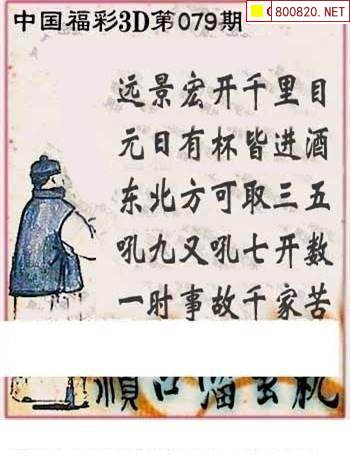 800820.NET
中国福彩3D第079期
远景宏开千里目
元日有杯皆进酒
东北方可取三五
吼九又吼七开数
一时事故千家苦